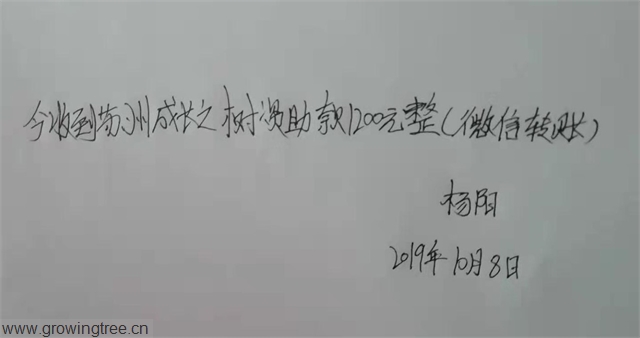 今收到苏州成长之树资助款1200元整(微信转账)
杨阳
2019年10月8日
www.growingtree.cn